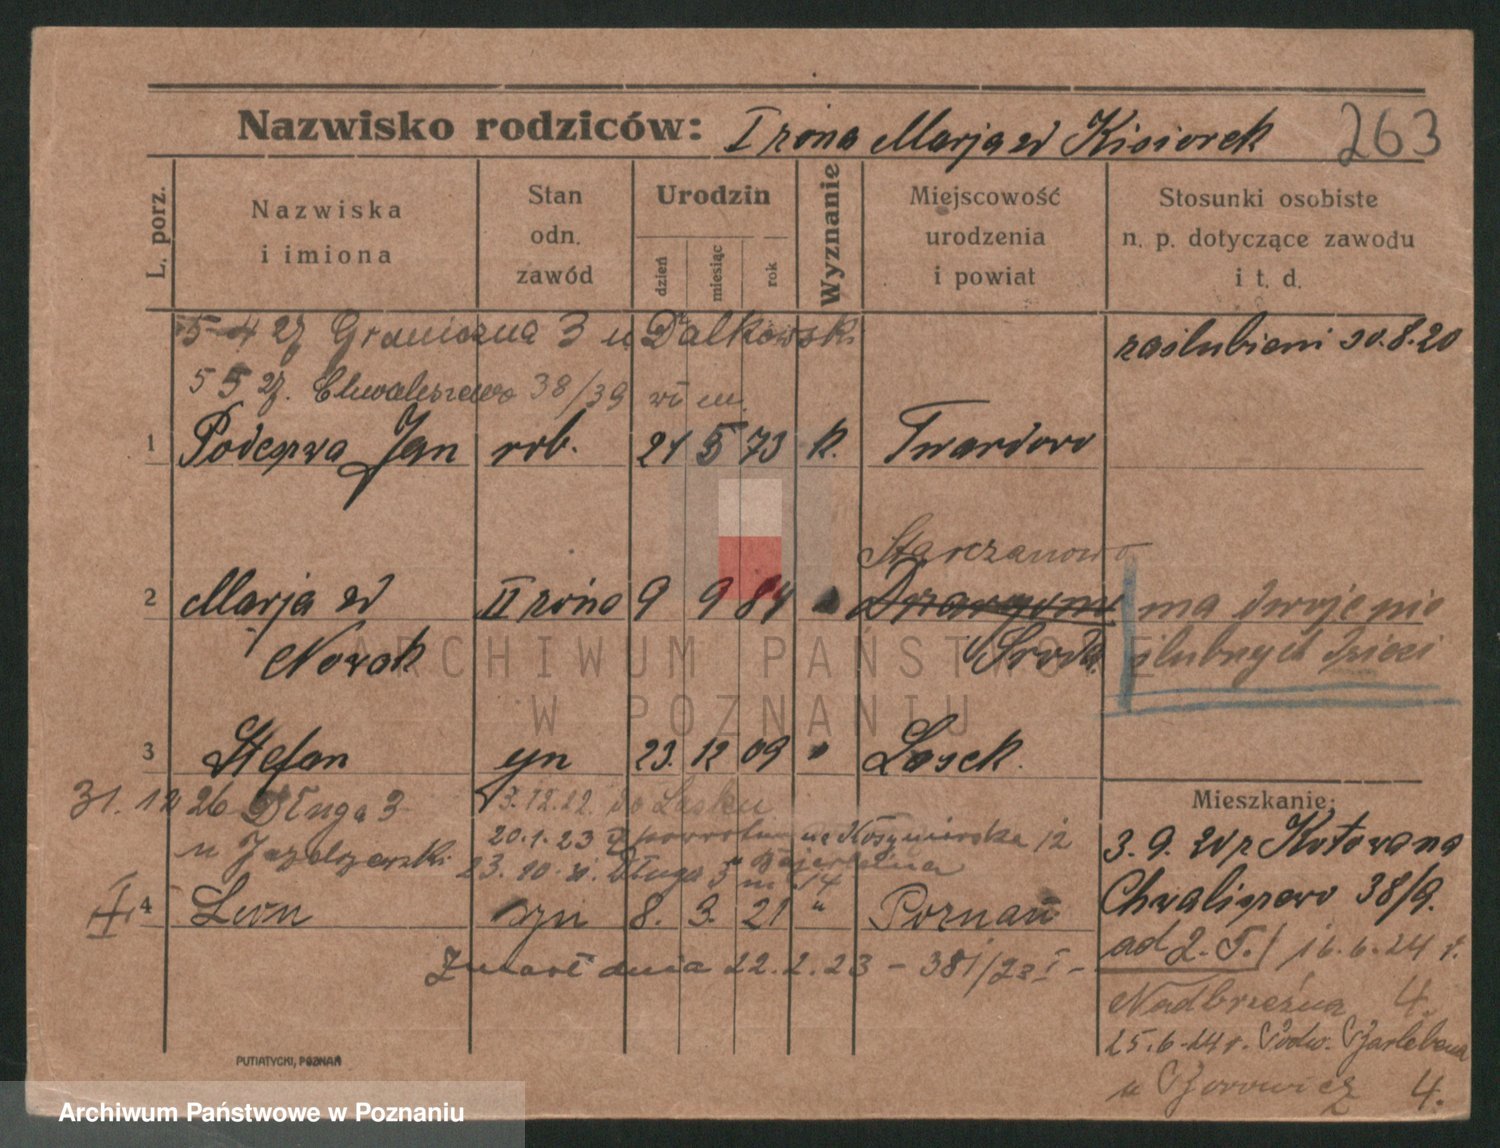 Nazwisko rodziców: I żona Marja zd Kisiorek 263
L. porz.
Nazwiska
i imiona
Stan
odn.
zawód
Urodzin
dzień
miesiąc
rok
Wyznanie
Miejscowość
urodzenia
i powiat
Stosunki osobiste
n. p. dotyczące zawodu
i t. d.
5 4 27 Graniczna 3 u Dalkowski
zaślubieni 30.8.20
5 5 27. Chwaliszewo 38/39 m.
1 Jan rob. 21 5 73 k. Twardowo
Starczanowo
2 Marja zd II żona 9 9 84 " ma dwoje nie
Nowak Środa ślubnych dzieci
3 Stefan syn 23. 12 09 " Lasek.
31. 12 26 Długa 3
3.12.22. do Lasku
Mieszkanie:
20.1.23 12
u
3.9.20
23. 10. Długa 5 m 14
4 Leon syn 8. 3. 21 " Poznań
Chwaliszewo 38/9.
ad 2. T./ 16.6.24 r.
Zmarł dnia 22.2.23 - 381/23 I -
Nadbrzeżna 4.
25.6.24 r. Podw.
u 4.
PUTIATYCKI, POZNAŃ
ARCHIWUM PAŃSTWOWE
W POZNANIU
Archiwum Państwowe w Poznaniu